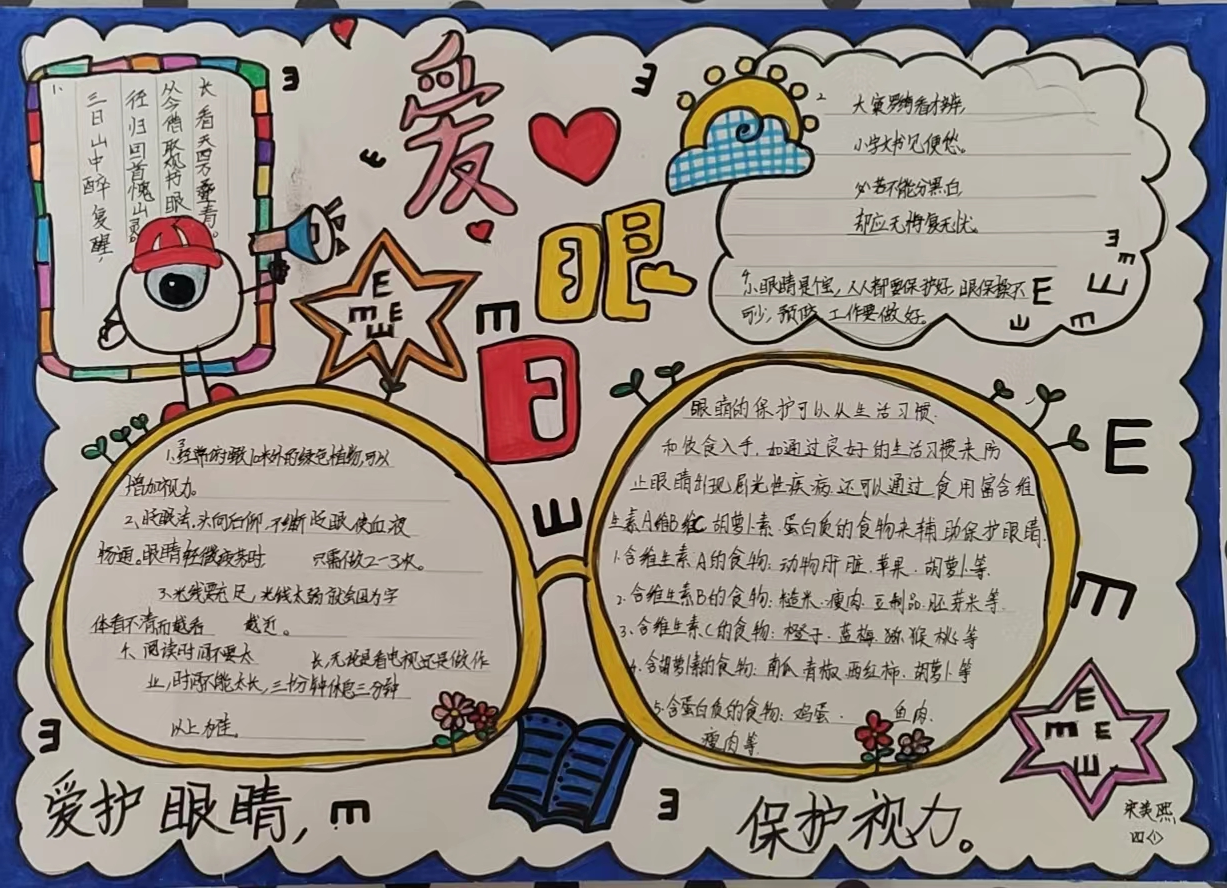 爱
眼
日
1.
长看天四万叠青。
从今借取观书眼
径归回首愧山灵。
三日山中醉复醒,
2
小字大书记便忘。
必若不能分黑白,
却应无悔复无忧。
小眼睛是个宝,人人都要保护好,眼保操不
可少,预防 工作要做好。
1、经常的眺10米外的绿色植物可以
增加视力。
2、眨眼法,头向后仰,不断眨眼使血液
畅通。眼睛轻微疲劳时 只需做2-3次。
3、光线要充足,光线太弱就会因为字
体看不清而越看 越近。
4、阅读时间不要太 长,无论是看电视还是做作
业,时间不能太长,三十分钟休息三分钟
以上为佳。
眼睛的保护可以从生活习惯
和饮食入手,如通过良好的生活习惯来防
止眼睛出现屈光性疾病,还可以通过食用富含维
生素A维B维C、胡萝卜素、蛋白质的食物来辅助保护眼睛
1.含维生素A的食物:动物肝脏、苹果、胡萝卜等
2.含维生素B的食物:糙米、瘦肉、豆制品、胚芽米等
3、含维生素C的食物:橙子、蓝梅、猕猴桃等
4、含胡萝卜素的食物:南瓜、青椒、西红柿、胡萝卜等
5.含蛋白质的食物:鸡蛋、 鱼肉、
瘦肉等
爱护眼睛,
保护视力。
四〈1〉
E
E
E
E
E
E
E
E